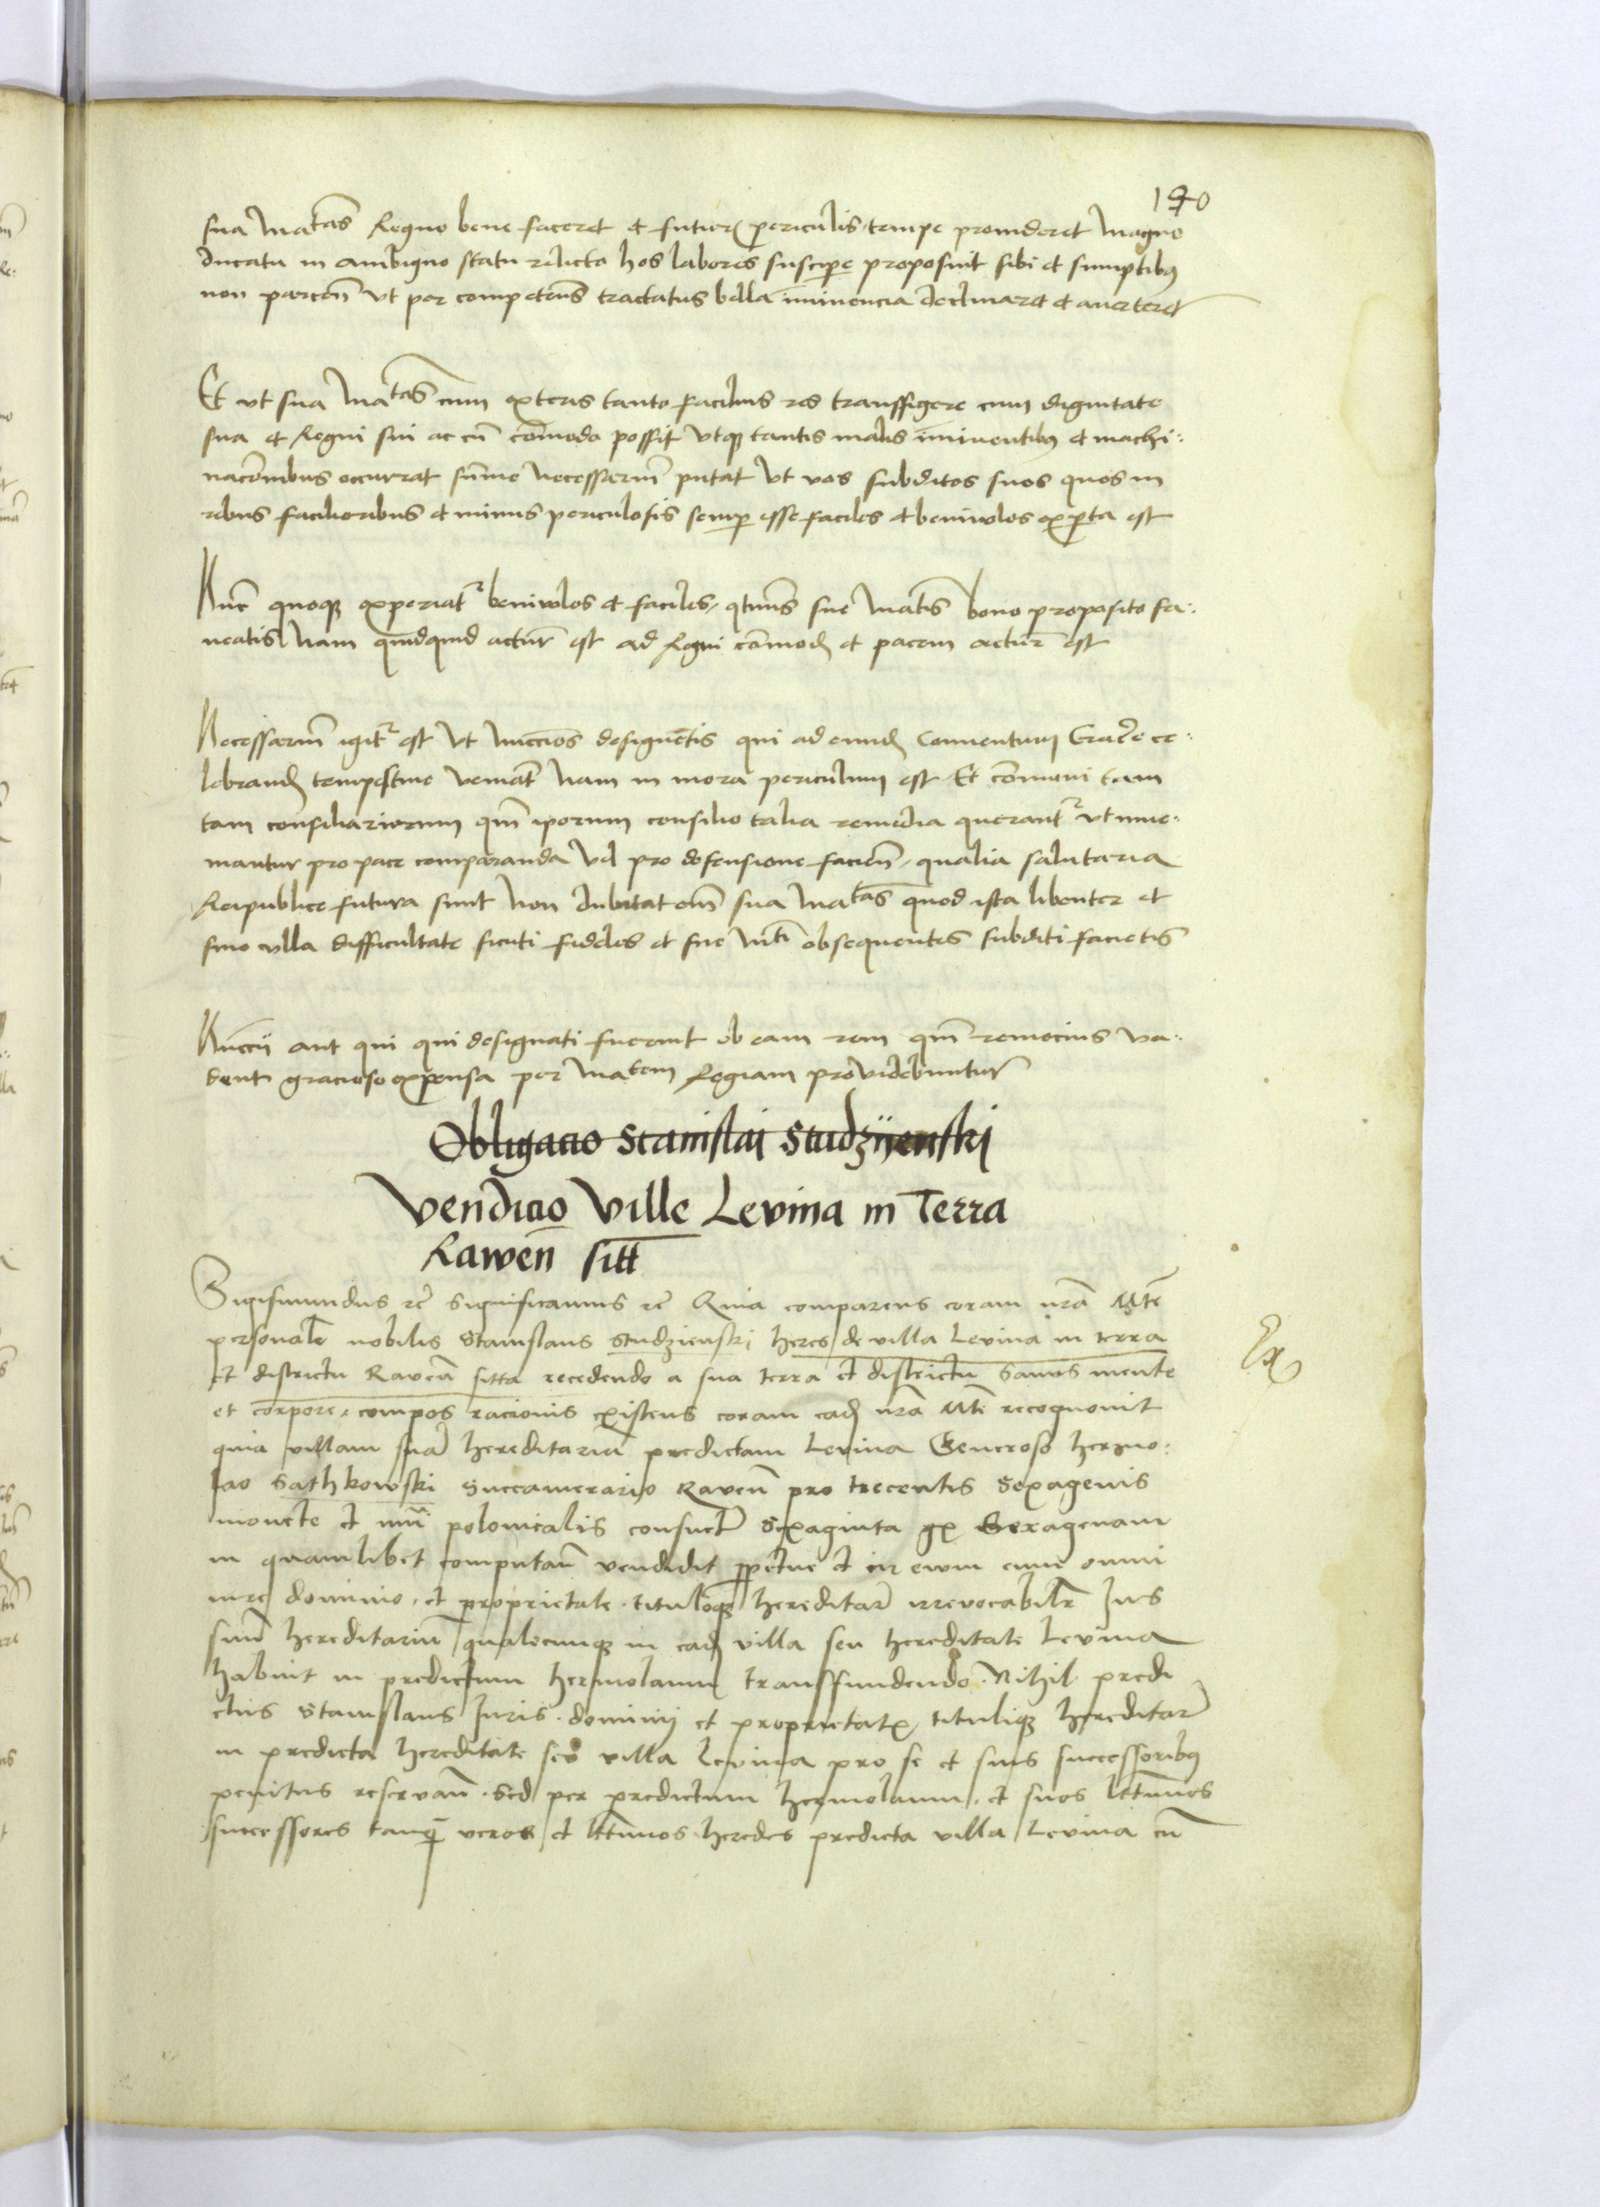 190
sua Ma͞tas Regno bene faceret et futur periculis tempe prouideret Magno
ducatu in ambiguo statu relicto hos labores suscipe proposuit sibi et sumptibus
non parcen̄ vt per competen̄s tractatus bella im̄inencia declinaret et auerteret
Et vt sua Ma͞tas cum exteris tanto facilius res transfigere cum dignitate
sua et Regni sui ac cū com̄odo possit vtqȝ tantis malis im̄inentibus et machi:
nac̄onibus occurrat sum̄e necessariū putat vt vos subditos suos quos in
rebus facilioribus et minus periculosis semp esse faciles et beniuolos exp̄ta est
Nūc quoqȝ experiat͛ beniuolos et faciles, qtinus sue Ma͞tis bono proposito fa:
ueatis Nam quidquid actur̄ est ad Regni com̄od et pacem actur̄ est
Necessariū igit͛ est vt Nuc̄cios designetis qui ad eundȝ Conuentum Grac̄ie ce:
lebrandȝ tempestiue veniāt Nam in mora periculum est Et com̄uni tam
tam consiliariorum qm̄ iporum consilio talia remedia querant͛ vt inue:
niantur pro pace comparanda vel pro defensione facien̄, qualia salutaria
Reipublice futura sunt Non dubitat em̄ sua Ma͞tas quod ista libenter et
sine vlla difficultate sicuti fideles et sue M͞ti obsequentes subditi facietis
Nuc̄cii aut qui qui designati fuerint ob eam rem qm̄ remocius va:
dent gracioso expensa per Ma͞tem Regiam prouidebuntur
Obligacio Stanislai Studzÿenski
Vendicio Ville Levina in Terra
Rawen̄ sitt̄
Sigismundus rc̄ Significamus rc̄ Quia comparens coram nrā M͞te
personal̄r nobilis Stanislaus Studzienski heres de villa Levina in terra
et districtu Raven̄ sitta recedendo a sua terra et districtu Sanus mente
et corpore, compos racionis existens coram eadȝ nrā M͞te recognouit
quia villam suā hereditariā predictam Levina Generoso hermo:
lao Sathkowski Succamerario Raven̄ pro trecentis Sexagenis
monete et nu͞i polonicalis consuet̄ Sexaginta gr Sexagenam
in quamlibet computan̄ vendidit p̄petue et in ewm cum omni
iure dominio, et proprietate tituloqȝ hereditar̄ irrevocabilr̄ Ius
suū hereditariū qualecunqȝ in eadȝ villa seu hereditate Levina
habuit in predictum hermolaum transsfundendo. Nihil predi
ctus Stanislaus Juris, dominij et proprietat, tituliqȝ hereditar̄
in predicta hereditate seu villa Levina pro se et suis successoribus
penitus reservan̄. Sed per predictum hermolaum, et suos l͞tt͞imos
successores tanqȝ veros et l͞tt͞imos heredes predicta villa Levina cū